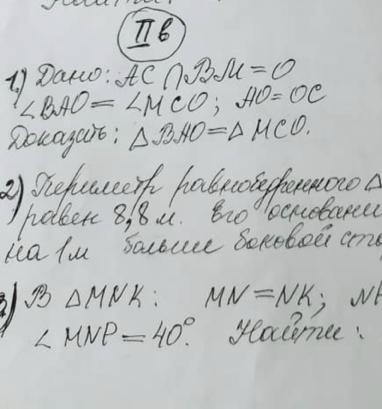 II в
1.) Дано: AC ∩ BM = O
∠BAO = ∠MCO; AO = OC
Доказать: △BAO = △MCO.
2) Периметр равнобедренного △
равен 8,8 м. Его основани
на 1 м больше боковой сто
3) В △MNK: MN = NK; NP
∠MNP = 40°. Найти: